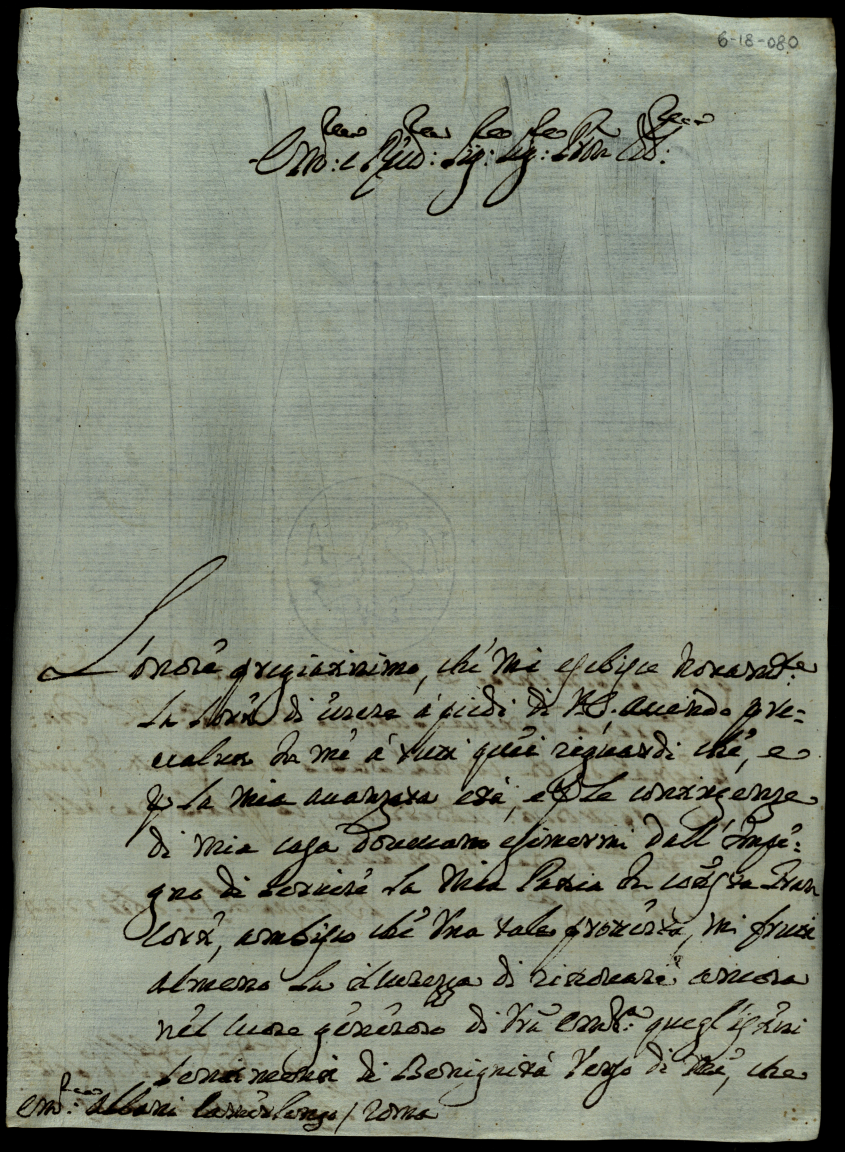 6-18-080
Em.mo e R.mo Sig. Sig. P.ron Col.mo
L'onore pregiatissimo, che mi esibisce novam.te
la sorte di essere à piedi di N. S. avendo pre=
valso in me à tutti quei riguardi che, e
p la mia avanzata età, e p le contingenze
di mia casa dovevano esimermi dall' Impe=
gno di servire la mia Patria in
Corte, ambisco che una tale, mi frutti
almeno la sicurezza di ritrovare ancora
nel cuore generoso di Vra Em.za quegl'istessi
sentimenti di Benignità verso di me, che
Em.mo Albani Camerlengo / Roma